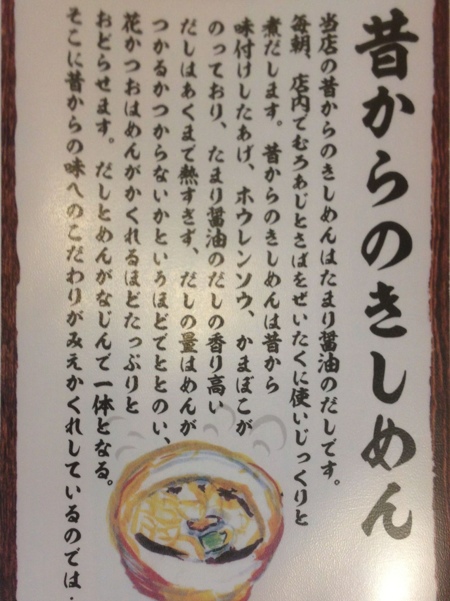 昔からのきしめん
当店の昔からのきしめんはたまり醤油のだしです。
毎朝、店内でむろあじとさばをぜいたくに使いじっくりと
煮だします。昔からのきしめんは昔から
味付けしたあげ、ホウレンソウ、かまぼこが
のっており、たまり醤油のだしの香り高い
だしはあくまで熱すぎず、だしの量はめんが
つかるかつからないかというほどでととのい、
花かつおはめんがかくれるほどたっぷりと
おどらせます。だしとめんがなじんで一体となる。
そこに昔からの味へのこだわりがみえかくれしているのでは・